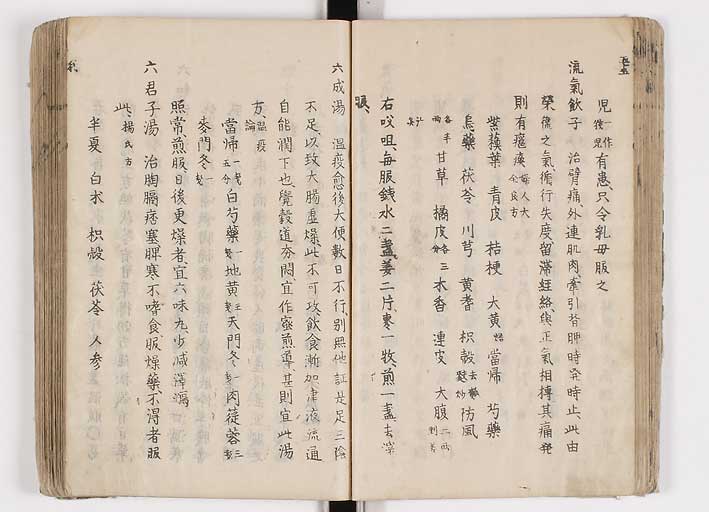 児一作後児有患只令乳母服之
流氣飲子 治臂痛外連肌肉牽引背胛時発時止此由
榮衛之氣循行失度留滞經絡與正氣相搏其痛発
則有瘟瘼婦人大全良方
紫蘇葉 青皮 桔梗 大黄煨 當帰 芍藥
烏藥 茯苓 川芎 黄耆 枳殻去穰麩炒 防風
各半両 甘草 橘皮各三分 木香 連皮 大腹二両剉姜汁
右㕮咀毎服銭水二盞姜二片棗一枚煎一盞去滓
服
六成湯 温疫愈後大便數日不行別無他証是足三陰
不足以致大腸虚燥此不可攻飲食漸加津液流通
自能潤下也覺穀道夯悶宜作蜜煎導甚則宜此湯
方温疫論
當帰一戔五分 白芍藥一戔 地黄五戔 天門冬一戔 肉蓯蓉三戔
麥門冬一戔
照常煎服日後更燥者宜六味丸少減澤瀉
六君子湯 治胸膈痞塞脾寒不嗜食服燥藥不得者服
此楊氏方
半夏 白朮 枳殻 茯苓 人参